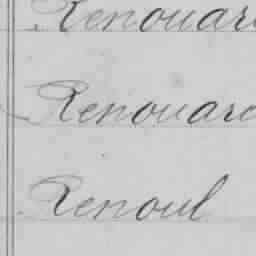 Renouard
Renouard
Renoul